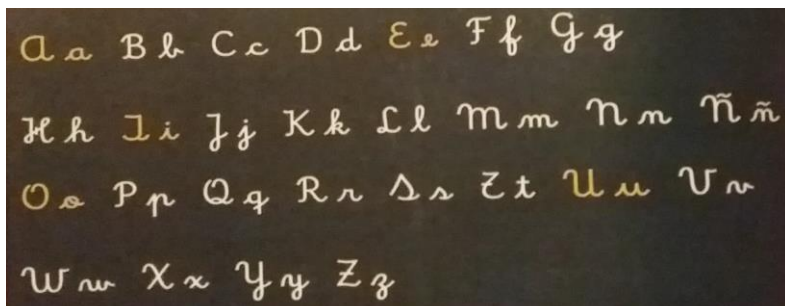 A a B b C c D d E e F f G g
H h I i J j K k L l M m N n Ñ ñ
O o P p Q q R r S s T t U u V v
W w X x Y y Z z